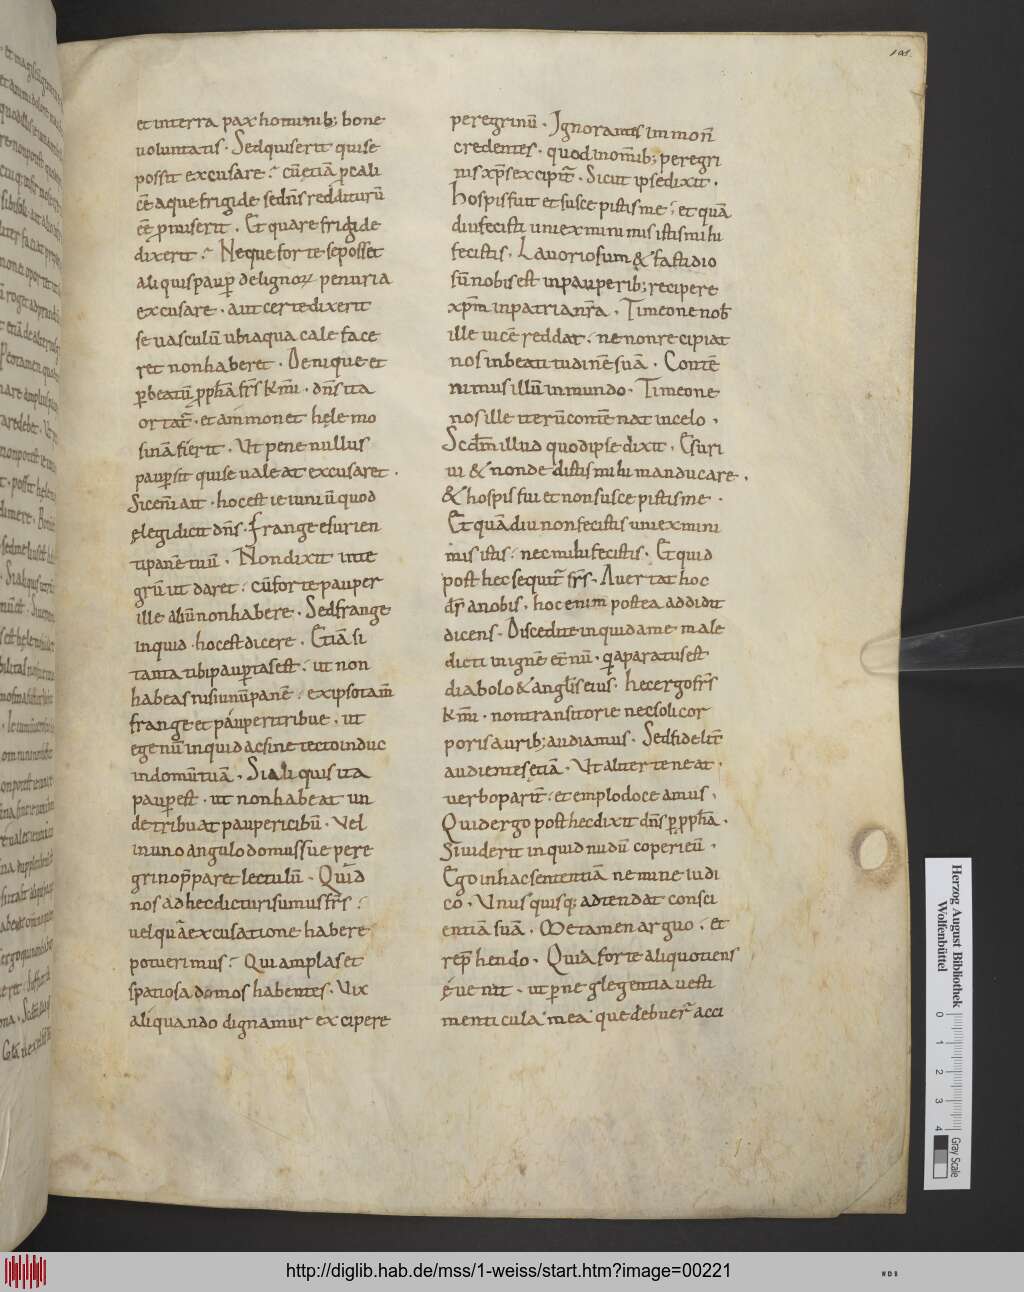 101.
et in terra pax hominib; bone
uoluntatis . Sed quis erit qui se
possit excusare . cū etiā p cali
cē aque frigide sed dn̄s redditurū
cē p̄miserit . Et quare frigide
dixerit . Neque forte se posset
aliquis paup de lignoꝝ penuria
excusare . aut certe dixerit
se uasculū ubi aqua cale face
ret non haberet . Denique et
p beatū p̄phā frs̄ km̄i . dn̄s ita
ortat̄ . et ammonet hęlemo
sinā fierit . Ut pene nullus
paup sit qui se ualeat excusaret .
Sic enī ait . hoc est ieiuniū quod
elegi dicit dn̄s . frange esurien
ti panē tuū . Non dixit inte
grū ut daret . cū forte pauper
ille aliū non habere . Sed frange
inquid . hoc est dicere . Etiā si
tanta tibi paup tas est . ut non
habeas nisi unū panē . ex ipso tam̄
frange et pauperi tribue . ut
egenū inquid ac sine tecto induc
in domū tuā . Si aliquis ita
paup est . ut non habeat un
de tribuat pauperi cibū . Vel
in uno angulo domus sue pere
grino p̄paret lectulū . Quid
nos ad hec dicturi sumus frs̄ .
uel quā excusatione habere
potuerimus . Qui amplas et
spatiosa domos habentes . Vix
aliquando dignamur excipere
peregrinū . Ignorantes immo n̄
credentes . quod in om̄ib; peregri
nis xp̄s excipit̄ . Sicut ipse dixit .
Hospis fuit et suscepistis me . et quā
diu fecisti uni ex minimis istis mihi
fecistis . Lauoriosum & fastidio
sū nobis est in pauperib; recipere
xp̄m in patria nr̄a . Timeo ne nob̄
ille uicē reddat . ne non recipiat
nos in beatitudinē suā . Contē
nimus illū in mundo . Timeo ne
nos ille iterū contēnat in celo .
Scd̄m illud quod ipse dixit . Esuri
ui & non dedistis mihi manducare .
& hospis fui et non suscepistis me .
Et quādiu non fecistis uni ex mini
mis istis . nec mihi fecistis . Et quid
post hec sequit̄ frs̄ . Auertat hoc
dr̄ a nobis . hoc enim postea addidit
dicens . Discedite inquid a me male
dicti in ignē et̄nū . q aparatus est
diabolo & angl̄is eius . hec ergo frs̄
km̄i . non transitorie nec soli cor
poris aurib; audiamus . Sed fidelit̄
audientes etiā . Ut aliter teneat .
uerbo parit̄ . et emplo doceamus .
Quid ergo post hec dixit dn̄s p p̄phā .
Si uiderit inquid nudū coperi eū .
Ego in hac sententiā nemine iudi
co . Unusquisq; adtendat consci
entiā suā . Me tamen arguo . et
rep̄hendo . Quia forte aliquotiens
ęuenit . ut p neglegentia uesti
menticula mea que debuer̄ acci
Herzog August Bibliothek
Wolfenbüttel
0 1 2 3 4
Gray Scale
http://diglib.hab.de/mss/1-weiss/start.htm?image=00221